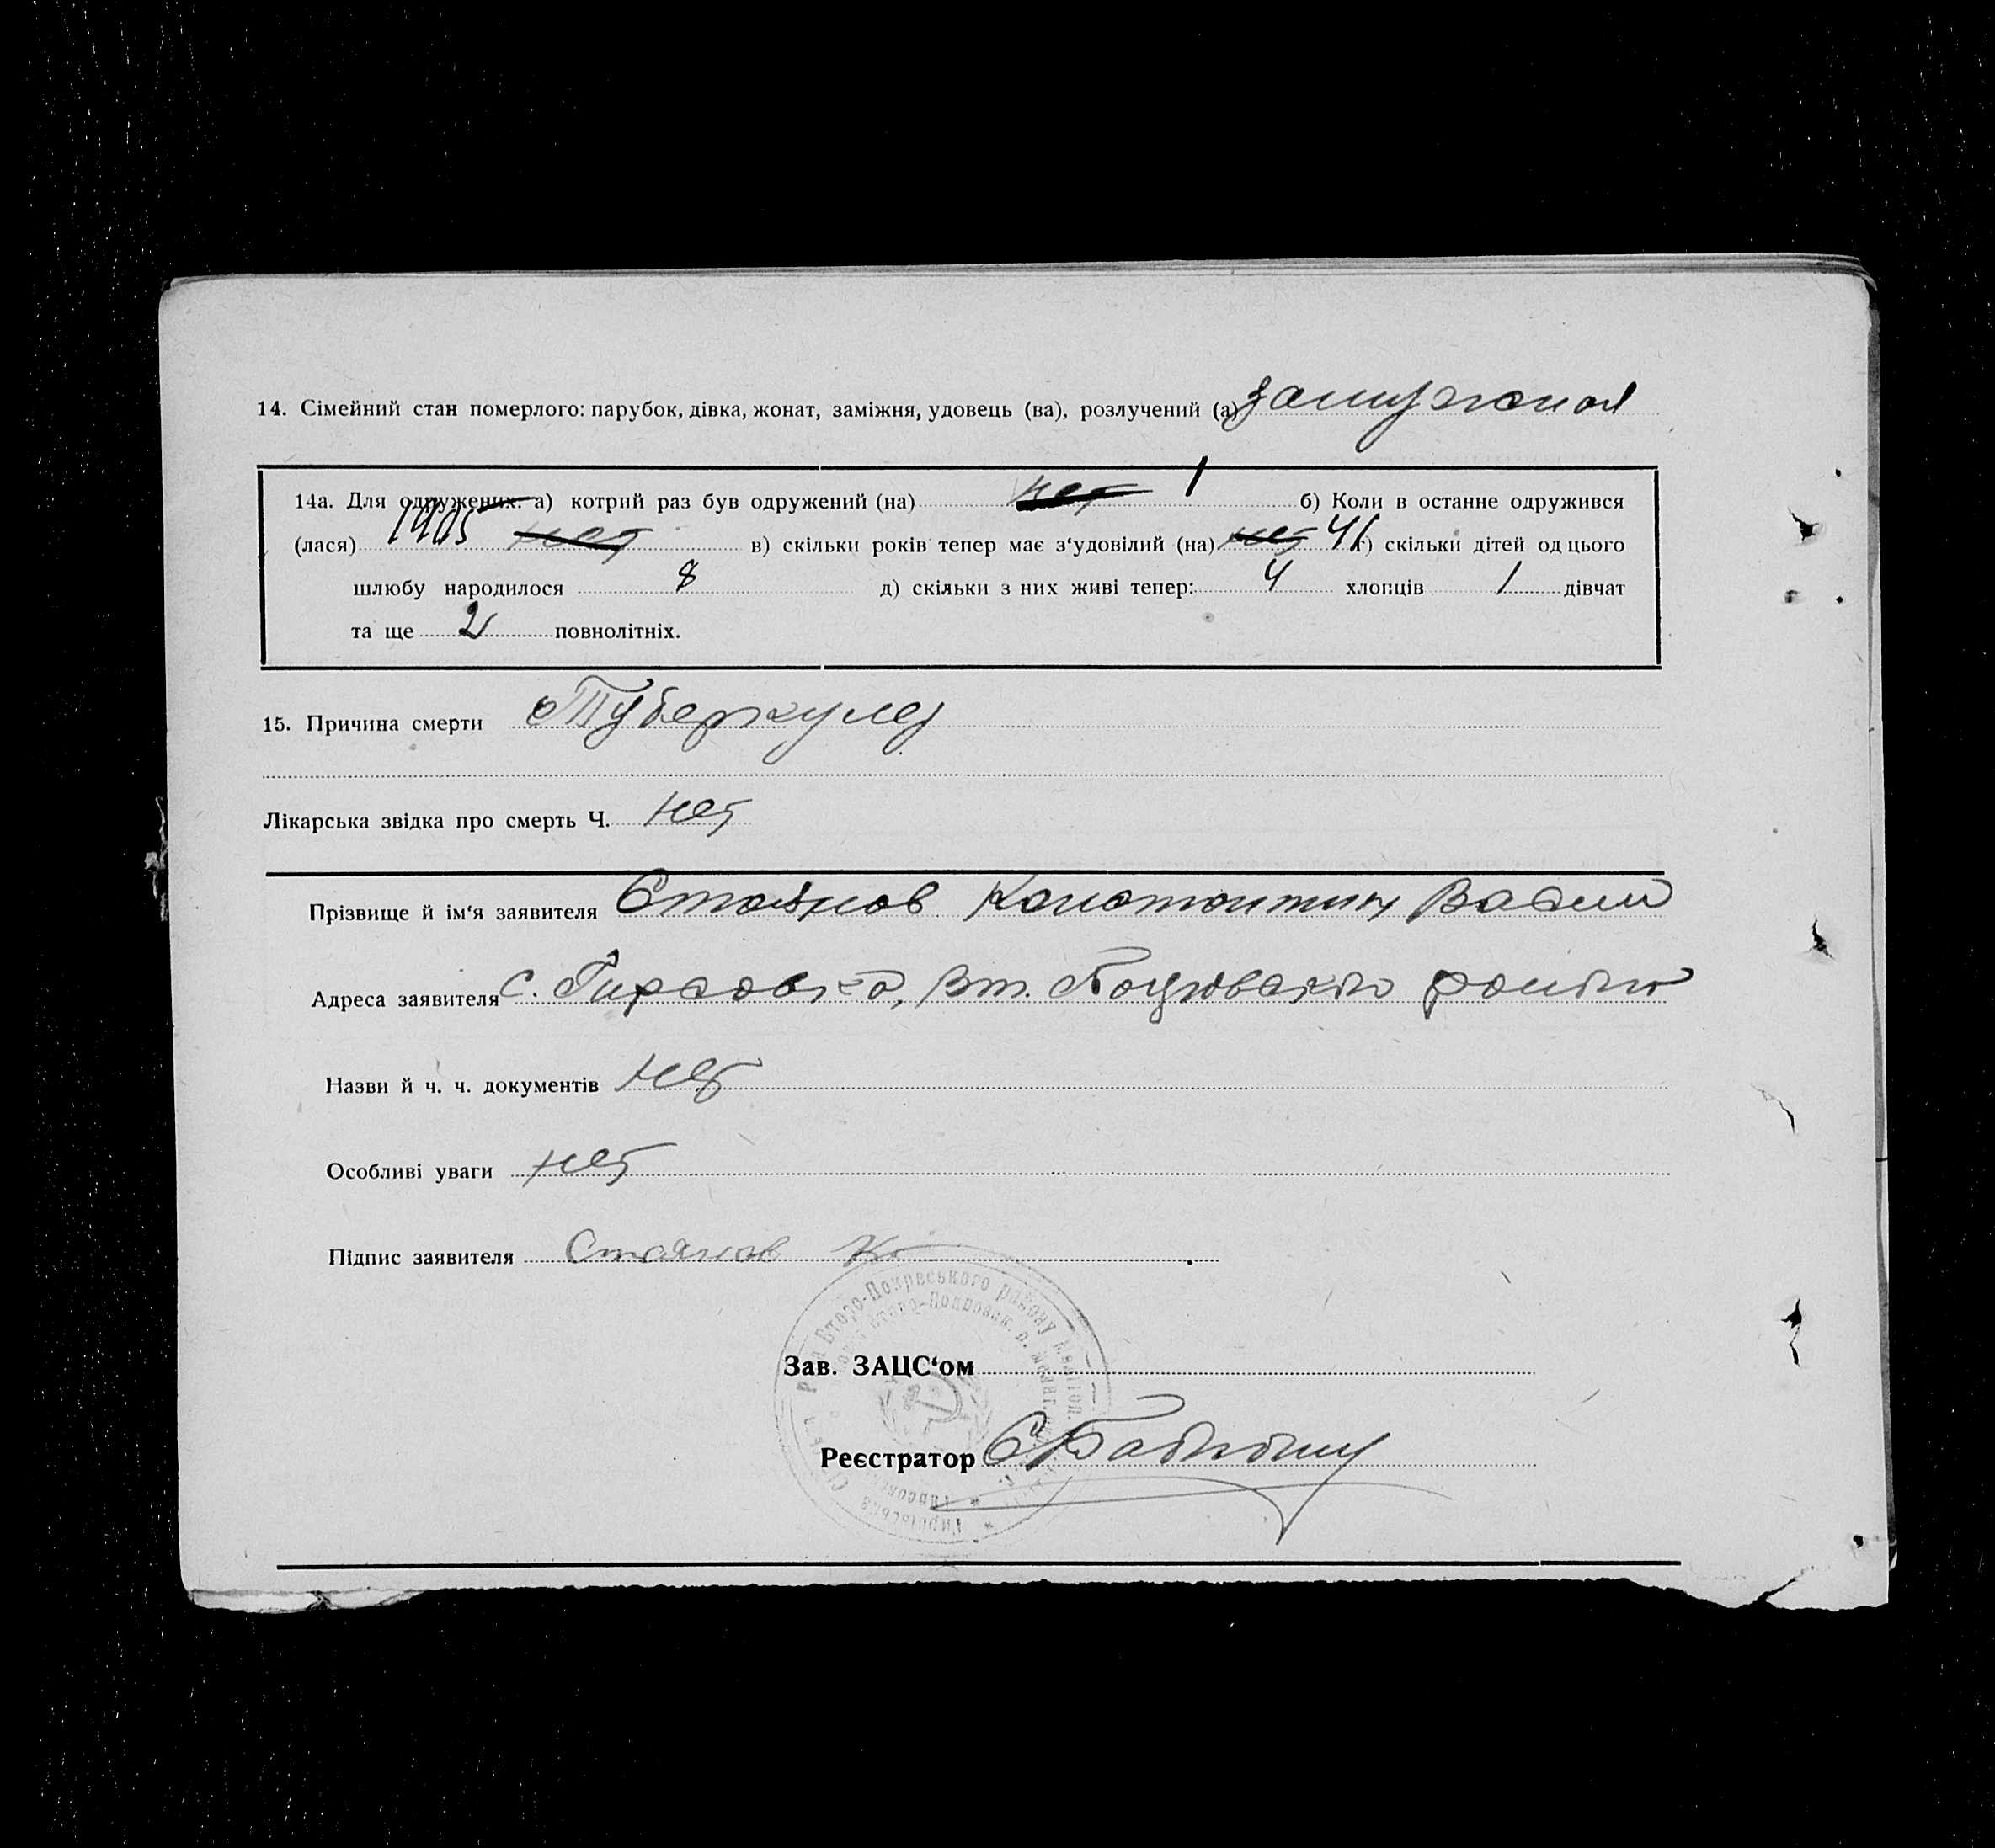 14. Сімейний стан померлого: парубок, дівка, жонат, заміжня, удовець (ва), розлучений (а) замужная
14а. Для одружених: а) котрий раз був одружений (на) нет 1 б) Коли в останне одружився
(лася) 1905 нет в) скільки років тепер має з‘удовілий (на) нет 41 г) скільки дітей од цього
шлюбу народилося 8 д) скільки з них живі тепер: 4 хлопців 1 дівчат
та ще 2 повнолітніх.
15. Причина смерти Туберкулез
Лікарська звідка про смерть Ч. нет
Прізвище й ім‘я заявителя Стоянов Константин Васил
Адреса заявителя с. Гирсовка, Вт. района
Назви й ч. ч. документів нет
Особливі уваги нет
Підпис заявителя Стоянов К
Второ-Покрвського району
Зав. ЗАЦС‘ом
Реєстратор